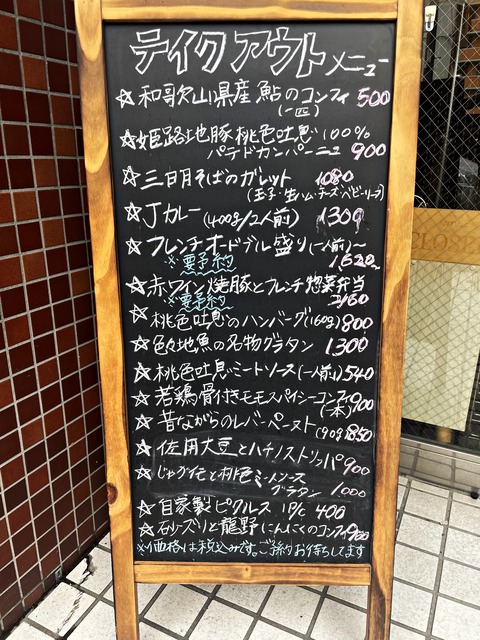 テイクアウトメニュー
☆和歌山県産鮎のコンフィ 500
(一匹)
☆姫路地豚桃色吐息100%
パテドカンパーニュ 900
☆三日月そばのガレット 1080
(玉子・生ハム・チーズ・ベビーリーフ)
☆Jカレー(400g/2人前) 1300
☆フレンチオードブル盛り(一人前)〜
※要予約 1,620〜
☆赤ワイン焼豚とフレンチ惣菜弁当
※要予約 2160
☆桃色吐息のハンバーグ(160g) 800
☆色々地魚の名物グラタン 1300
☆桃色吐息ミートソース(一人前) 540
☆若鶏骨付きモモスパイシーコンフィ
(一本) 900
☆昔ながらのレバーペースト(90g) 850
☆佐用大豆とハチノストリッパ 900
☆じゃが芋と桃色ミートソース
グラタン 1,000
☆自家製ピクルス 1P/c 400
☆砂ズリと龍野にんにくのコンフィ 900
※価格は税込みです。ご予約お待ちしてます
CLOSE